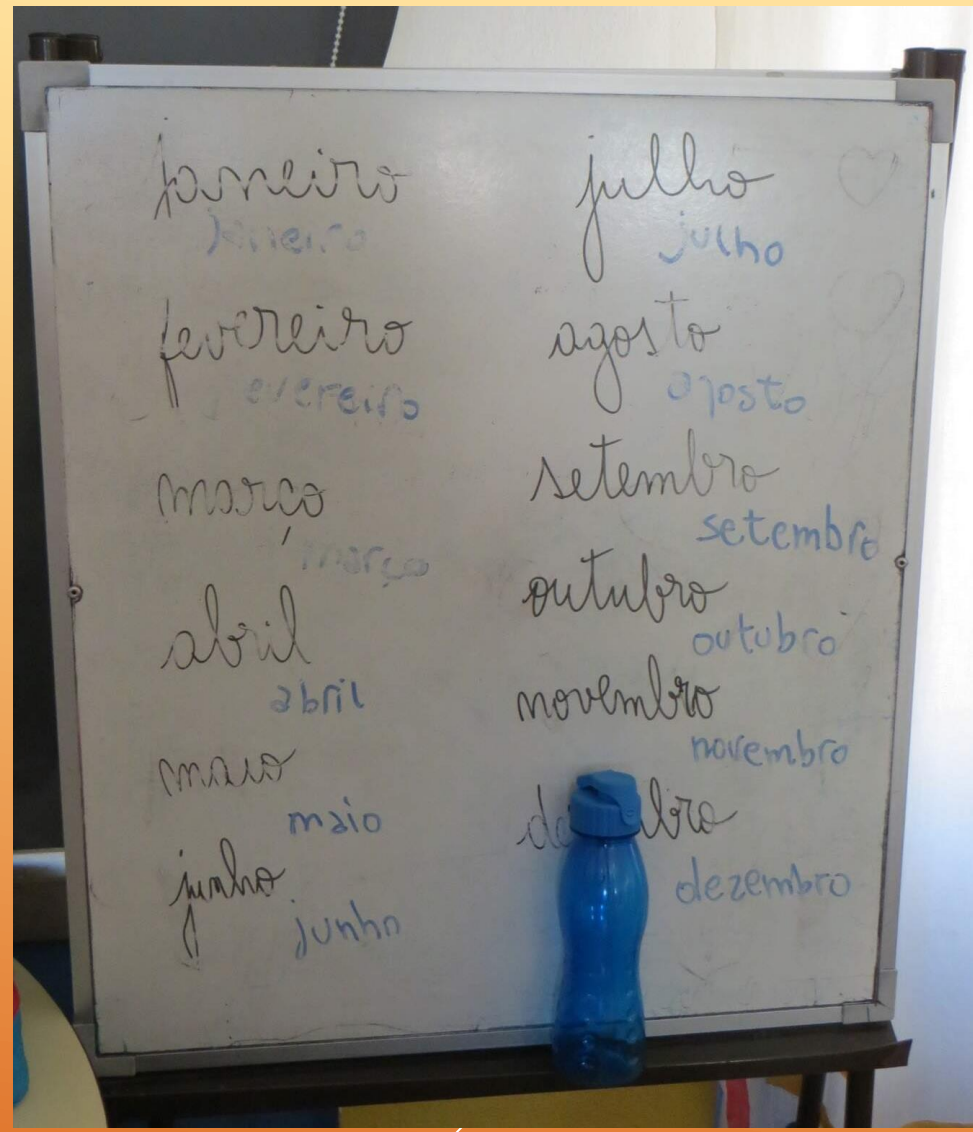 janeiro
janeiro
fevereiro
evereiro
março
março
abril
abril
maio
maio
junho
junho
julho
julho
agosto
agosto
setembro
setembro
outubro
outubro
novembro
novembro
dezembro